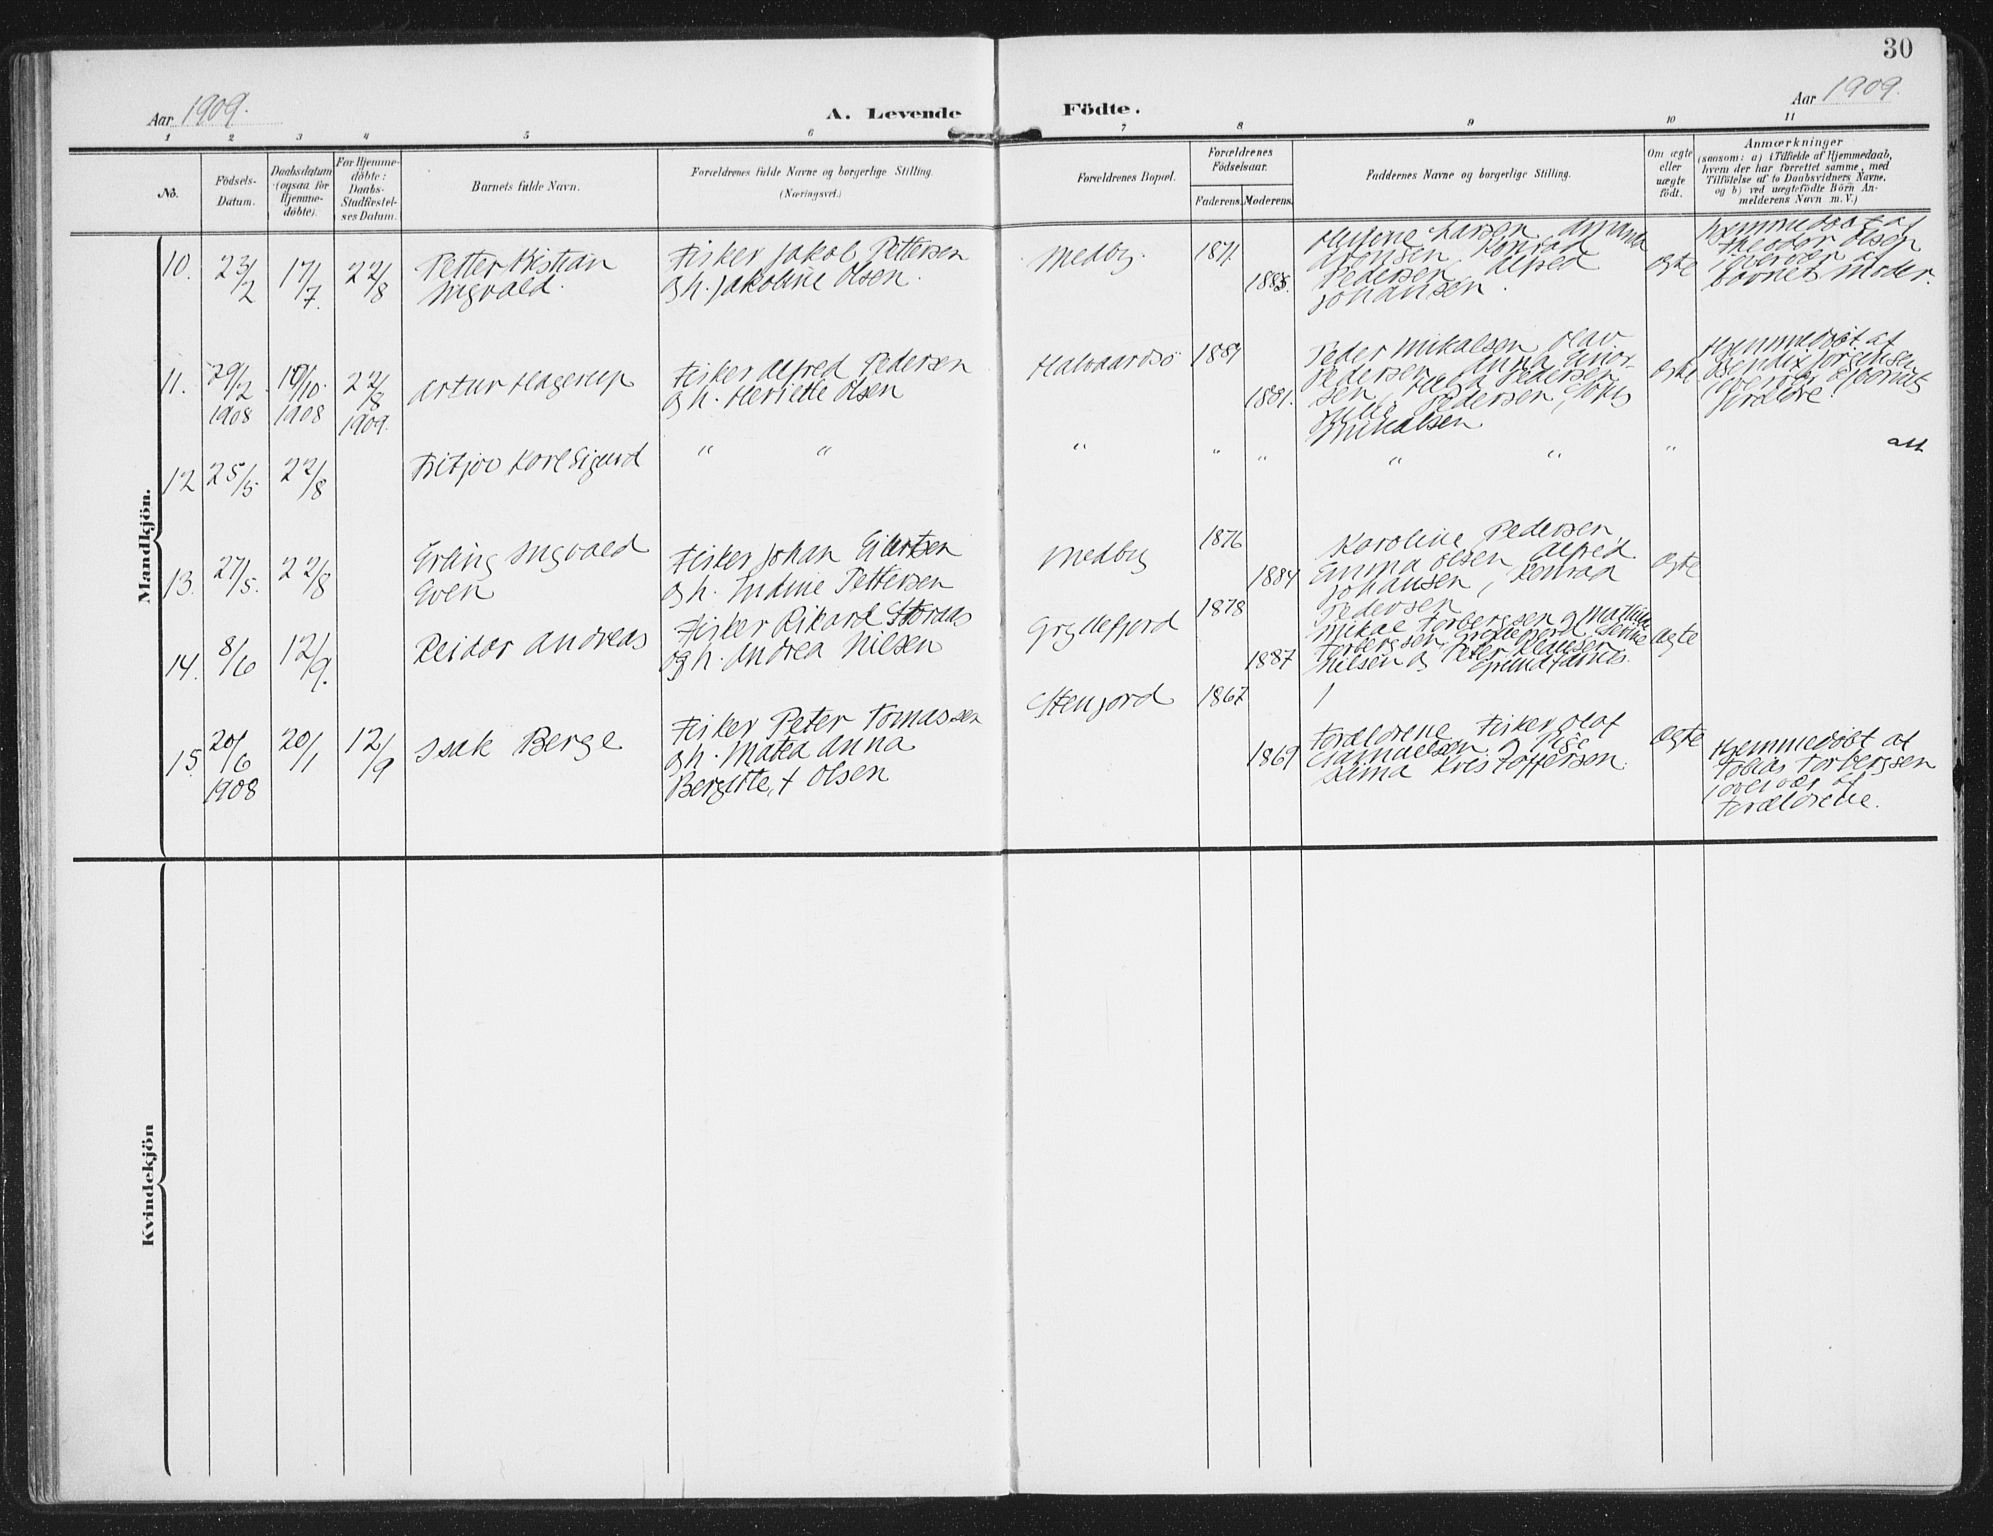 30
Aar 1909.
A. Levende Födte.
Aar 1909.
1 2 3 4 5 6 7 8 9 10 11
No.
Födsels-
Datum.
Daabsdatum
(ogsaa for
Hjemme-
döbte).
For Hjemme-
döbte:
Daabs-
Stadfæstel-
ses Datum.
Barnets fulde Navn.
Forældrenes fulde Navne og borgerlige Stilling.
(Næringsvei.)
Forældrenes Bopæl.
Forældrenes
Födselsaar.
Faderens. Moderens.
Faddernes Navne og borgerlige Stilling.
Om ægte
eller
uægte
födt.
Anmærkninger
(saasom: a) i Tilfælde af Hjemmedaab,
hvem der har forrettet samme, med
Tilföielse af to Daabsvidners Navne,
og b) ved uægtefödte Börn An-
melderens Navn m. V.)
Mandkjön.
10. 23/2 17/7. 22/8
Petter Kristian
Ingvald.
Fisker Jakob Pettersen
og h. Jakobine Olsen.
Medby.
1871
1885.
Larsen, Amanda
Konrad
Pedersen, Alfred
Johansen.
Ægte
Hjemmedöbt af
Theodor Olsen
i overvær af
barnets moder.
11. 29/12 1908 10/10. 1908 22/8 1909.
Artur Hagerup
Fisker Alfred Pedersen
og h. Henriette Olsen
Halvaardsö
1881.
Peder Mikalsen Olav
Pedersen, Anna Einar-
sen, Pedersen
Pedersen,
Mikalsen
Ægte
Hjemmedöbt af
Bendix
i overvær af barnets
forældre.
12 25/5. 22/8
Fritjov Karl Sigurd
" " " " " " " "
att
13. 27/5. 22/8
Erling Ingvald
Even
Fisker Johan Eilertsen
og h. Indine Pettersen
Medby
1876
1884
Karoline Pedersen,
Emma Olsen Alfred
Johansen, Konrad
Pedersen
Ægte
14. 8/6 12/9.
Reidar Andreas
Fisker Rikard
og h. Andrea Nilsen
Gryllefjord
1878
1887
Mikal Torbergsen og Mathilde
Torbergsen, Gryllefjord,
Nilsen og Peter Klausen
Ægte
15. 20/6 1908 20/1 12/9
Isak Berge
Fisker Peter Tomassen
og h. Matea Anna
Bergitte, f Olsen
Stenfjord
1867
1869
Forældrene Fisker Olaf
Samuelsen og Pige
Kristoffersen.
Ægte
Hjemmedöbt af
Tobias Torbergsen
i overvær af
Forældrene.
Kvindekjön